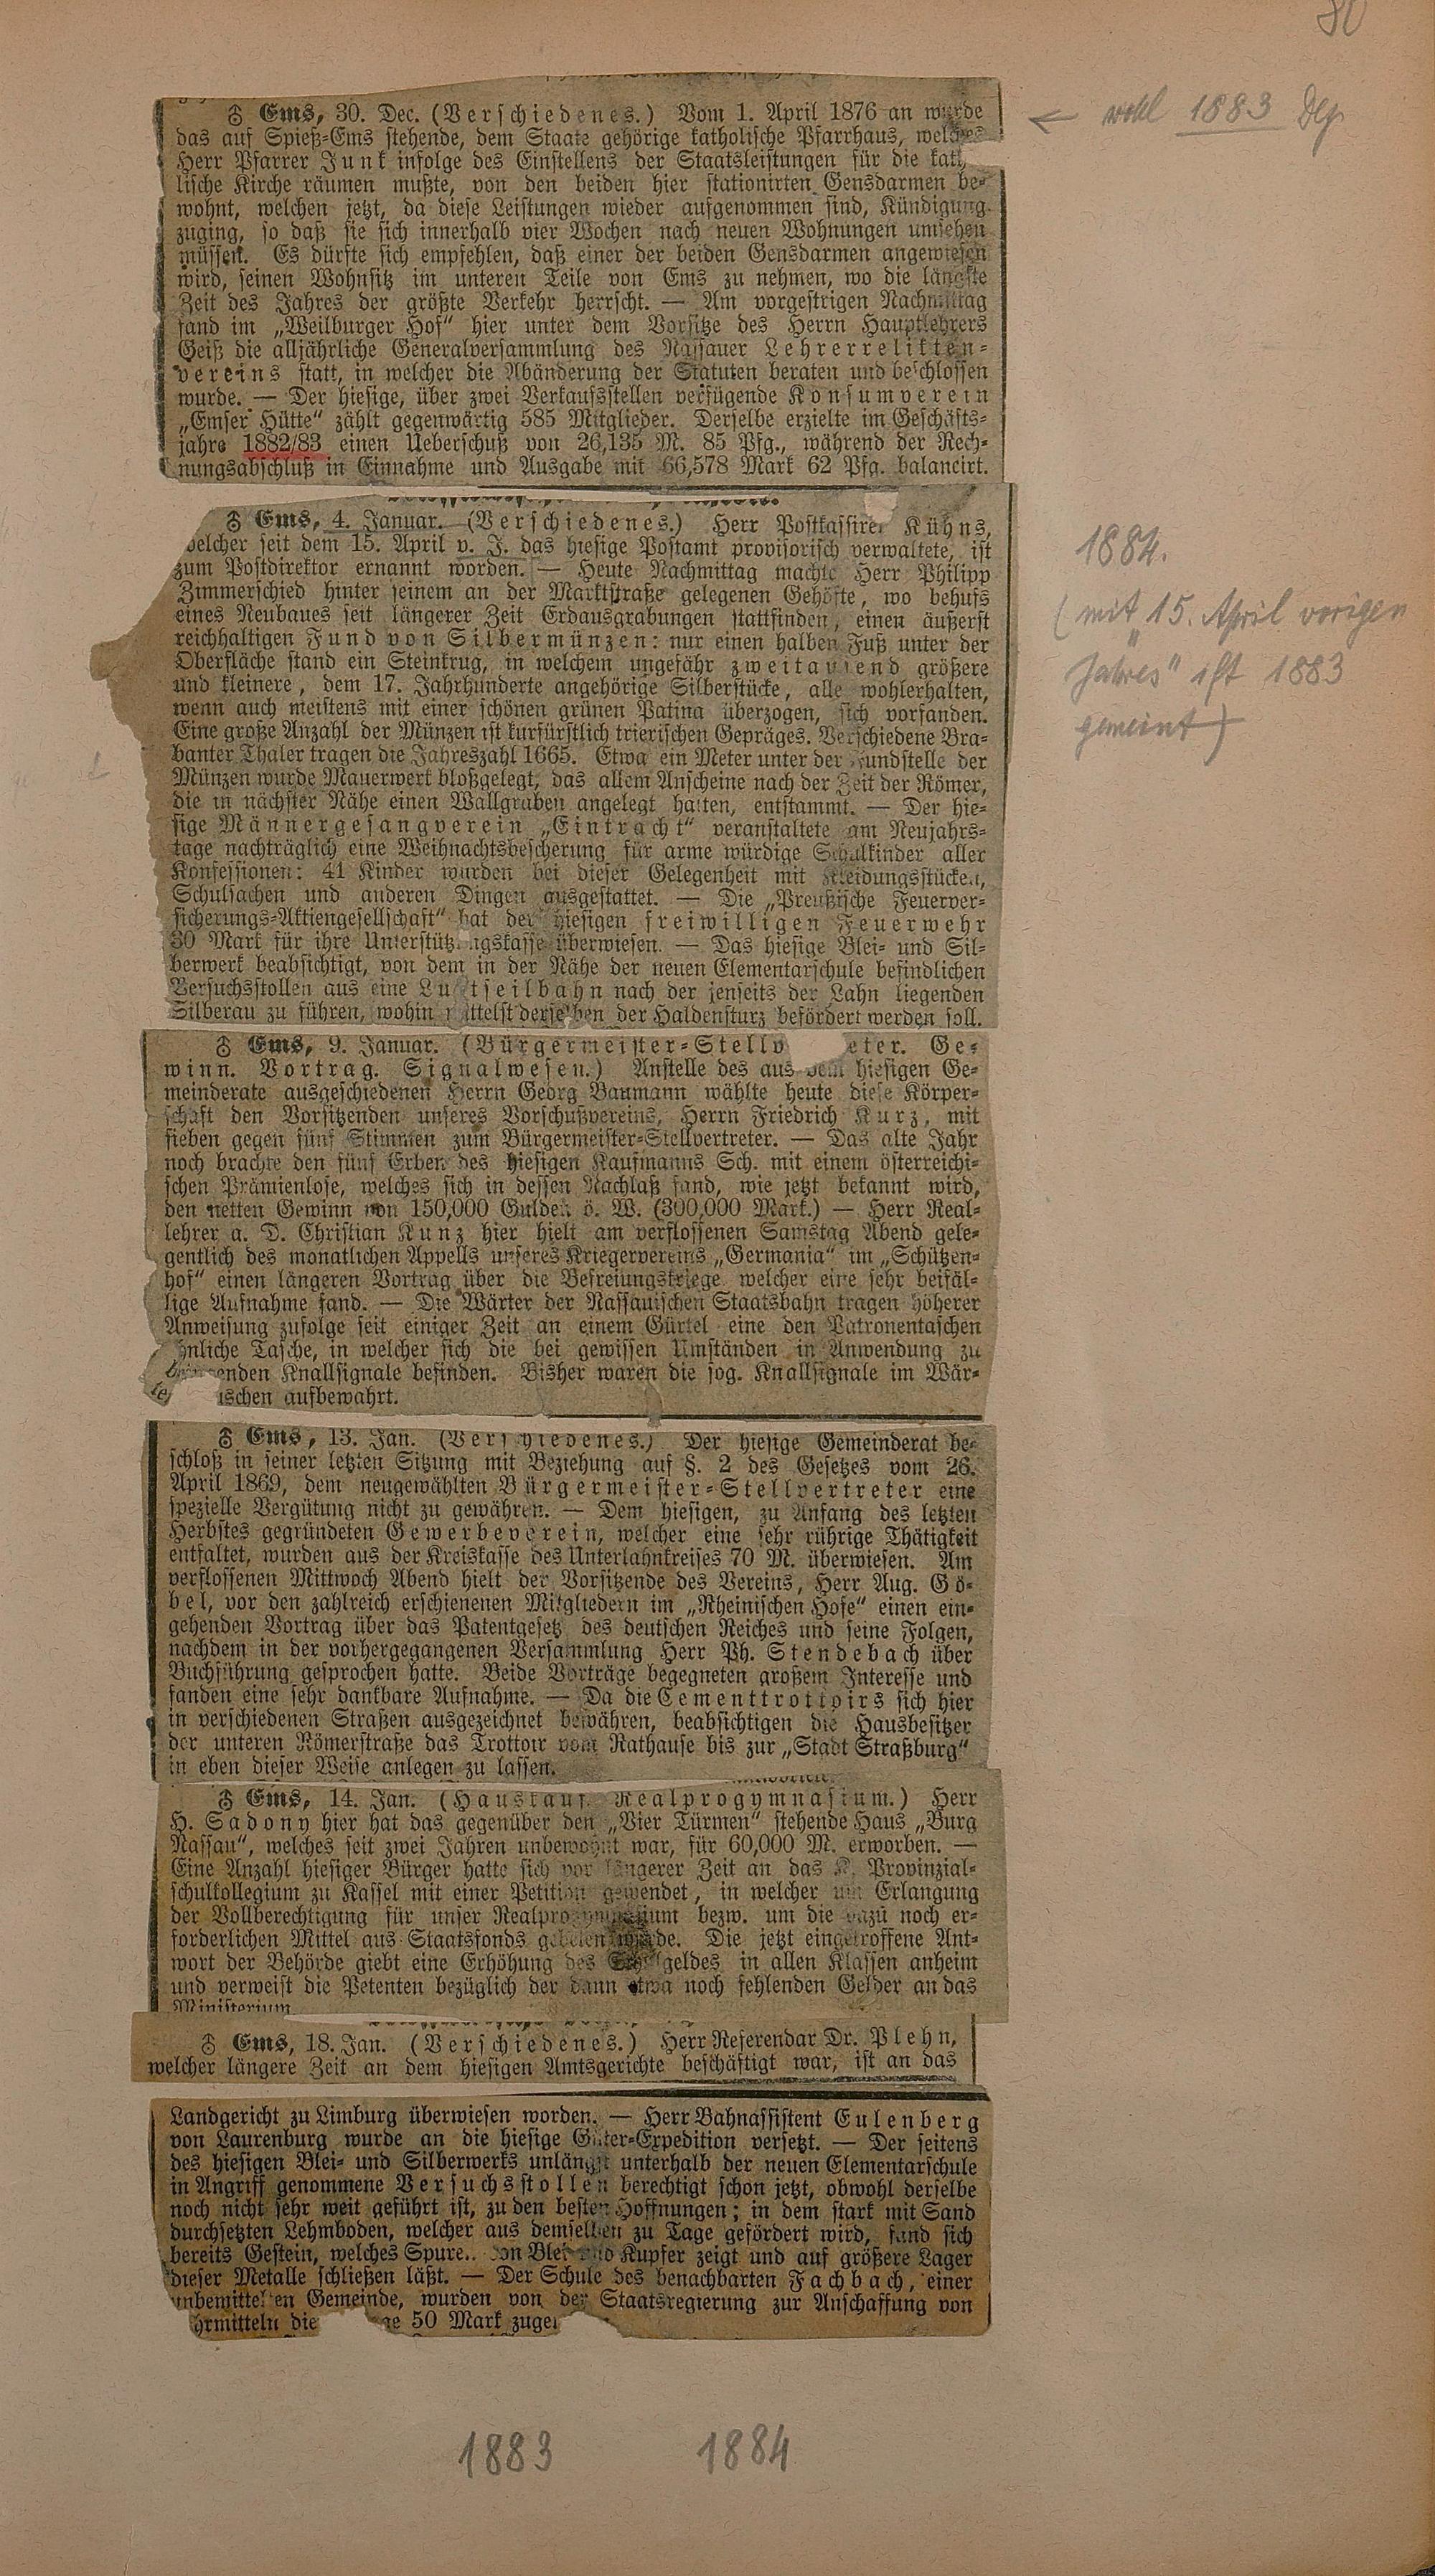 80
♁ Ems, 30. Dec. (Verschiedenes.) Vom 1. April 1876 an wurde
das auf Spieß-Ems stehende, dem Staate gehörige katholische Pfarrhaus, welches
Herr Pfarrer Junk infolge des Einstellens der Staatsleistungen für die kath
lische Kirche räumen mußte, von den beiden hier stationirten Gensdarmen be-
wohnt, welchen jetzt, da diese Leistungen wieder aufgenommen sind, Kündigung
zuging, so daß sie sich innerhalb vier Wochen nach neuen Wohnungen umsehen
müssen. Es dürfte sich empfehlen, daß einer der beiden Gensdarmen angewiesen
wird, seinen Wohnsitz im unteren Teile von Ems zu nehmen, wo die längste
Zeit des Jahres der größte Verkehr herrscht. — Am vorgestrigen Nachmittag
fand im „Weilburger Hof“ hier unter dem Vorsitze des Herrn Hauptlehrers
Geiß die alljährliche Generalversammlung des Nassauer Lehrerrelikten-
vereins statt, in welcher die Abänderung der Statuten beraten und beschlossen
wurde. — Der hiesige, über zwei Verkaufsstellen verfügende Konsumverein
„Emser Hütte“ zählt gegenwärtig 585 Mitglieder. Derselbe erzielte im Geschäfts-
jahre 1882/83 einen Ueberschuß von 26,135 M. 85 Pfg., während der Rech-
nungsabschluß in Einnahme und Ausgabe mit 66,578 Mark 62 Pfg. balancirt.
← wohl 1883
♁ Ems, 4. Januar. (Verschiedenes.) Herr Postkassirer Kühns,
welcher seit dem 15. April v. J. das hiesige Postamt provisorisch verwaltete, ist
zum Postdirektor ernannt worden. — Heute Nachmittag machte Herr Philipp
Zimmerschied hinter seinem an der Marktstraße gelegenen Gehöfte, wo behufs
eines Neubaues seit längerer Zeit Erdausgrabungen stattfinden, einen äußerst
reichhaltigen Fund von Silbermünzen: nur einen halben Fuß unter der
Oberfläche stand ein Steinkrug, in welchem ungefähr zweitausend größere
und kleinere, dem 17. Jahrhunderte angehörige Silberstücke, alle wohlerhalten,
wenn auch meistens mit einer schönen grünen Patina überzogen, sich vorfanden.
Eine große Anzahl der Münzen ist kurfürstlich trierischen Gepräges. Verschiedene Bra-
banter Thaler tragen die Jahreszahl 1665. Etwa ein Meter unter der Fundstelle der
Münzen wurde Mauerwerk bloßgelegt, das allem Anscheine nach der Zeit der Römer,
die in nächster Nähe einen Wallgraben angelegt hatten, entstammt. — Der hie-
sige Männergesangverein „Eintracht“ veranstaltete am Neujahrs-
tage nachträglich eine Weihnachtsbescherung für arme würdige Schulkinder aller
Konfessionen: 41 Kinder wurden bei dieser Gelegenheit mit Kleidungsstücken,
Schulsachen und anderen Dingen ausgestattet. — Die „Preußische Feuerver-
sicherungs-Aktiengesellschaft“ hat der hiesigen freiwilligen Feuerwehr
30 Mark für ihre Unterstützungskasse überwiesen. — Das hiesige Blei- und Sil-
berwerk beabsichtigt, von dem in der Nähe der neuen Elementarschule befindlichen
Versuchsstollen aus eine Luftseilbahn nach der jenseits der Lahn liegenden
Silberau zu führen, wohin mittelst derselben der Haldensturz befördert werden soll.
1884.
(mit 15. April vorigen
Jahres“ ist 1883
gemeint)
♁ Ems, 9. Januar. (Bürgermeister-Stellv eter. Ge-
winn. Vortrag. Signalwesen.) Anstelle des aus dem hiesigen Ge-
meinderate ausgeschiedenen Herrn Georg Baumann wählte heute diese Körper-
schaft den Vorsitzenden unseres Vorschußvereins, Herrn Friedrich Kurz, mit
sieben gegen fünf Stimmen zum Bürgermeister-Stellvertreter. — Das alte Jahr
noch brachte den fünf Erben des hiesigen Kaufmanns Sch. mit einem österreichi-
schen Prämienlose, welches sich in dessen Nachlaß fand, wie jetzt bekannt wird,
den netten Gewinn von 150,000 Gulden ö. W. (300,000 Mark.) — Herr Real-
lehrer a. D. Christian Kunz hier hielt am verflossenen Samstag Abend gele-
gentlich des monatlichen Appells unseres Kriegervereins „Germania“ im „Schützen-
hof“ einen längeren Vortrag über die Befreiungskriege welcher eine sehr beifäl-
lige Aufnahme fand. — Die Wärter der Nassauischen Staatsbahn tragen höherer
Anweisung zufolge seit einiger Zeit an einem Gürtel eine den Patronentaschen
ähnliche Tasche, in welcher sich die bei gewissen Umständen in Anwendung zu
enden Knallsignale befinden. Bisher waren die sog. Knallsignale im Wär-
uschen aufbewahrt.
♁ Ems, 13. Jan. (Verschiedenes.) Der hiesige Gemeinderat be-
schloß in seiner letzten Sitzung mit Beziehung auf §. 2 des Gesetzes vom 26.
April 1869, dem neugewählten Bürgermeister-Stellvertreter eine
spezielle Vergütung nicht zu gewähren. — Dem hiesigen, zu Anfang des letzten
Herbstes gegründeten Gewerbeverein, welcher eine sehr rührige Thätigkeit
entfaltet, wurden aus der Kreiskasse des Unterlahnkreises 70 M. überwiesen. Am
verflossenen Mittwoch Abend hielt der Vorsitzende des Vereins, Herr Aug. Gö-
bel, vor den zahlreich erschienenen Mitgliedern im „Rheinischen Hofe“ einen ein-
gehenden Vortrag über das Patentgesetz des deutschen Reiches und seine Folgen,
nachdem in der vorhergegangenen Versammlung Herr Ph. Stendebach über
Buchführung gesprochen hatte. Beide Vorträge begegneten großem Interesse und
fanden eine sehr dankbare Aufnahme. — Da die Cementtrottoirs sich hier
in verschiedenen Straßen ausgezeichnet bewähren, beabsichtigen die Hausbesitzer
der unteren Römerstraße das Trottoir vom Rathause bis zur „Stadt Straßburg“
in eben dieser Weise anlegen zu lassen.
♁ Ems, 14. Jan. (Hauskauf. Realprogymnasium.) Herr
H. Sadony hier hat das gegenüber den „Vier Türmen“ stehende Haus „Burg
Nassau“, welches seit zwei Jahren unbewohnt war, für 60,000 M. erworben. —
Eine Anzahl hiesiger Bürger hatte sich vor längerer Zeit an das K. Provinzial-
schulkollegium zu Kassel mit einer Petition gewendet, in welcher um Erlangung
der Vollberechtigung für unser Realprogymnasium bezw. um die dazu noch er-
forderlichen Mittel aus Staatsfonds gebeten wurde. Die jetzt eingetroffene Ant-
wort der Behörde giebt eine Erhöhung des Schulgeldes in allen Klassen anheim
und verweist die Petenten bezüglich der dann etwa noch fehlenden Gelder an das
Ministerium
♁ Ems, 18. Jan. (Verschiedenes.) Herr Referendar Dr. Plehn,
welcher längere Zeit an dem hiesigen Amtsgerichte beschäftigt war, ist an das
Landgericht zu Limburg überwiesen worden. — Herr Bahnassistent Eulenberg
von Laurenburg wurde an die hiesige Güter-Expedition versetzt. — Der seitens
des hiesigen Blei- und Silberwerks unlängst unterhalb der neuen Elementarschule
in Angriff genommene Versuchsstollen berechtigt schon jetzt, obwohl derselbe
noch nicht sehr weit geführt ist, zu den besten Hoffnungen; in dem stark mit Sand
durchsetzten Lehmboden, welcher aus demselben zu Tage gefördert wird, fand sich
bereits Gestein, welches Spuren von Blei und Kupfer zeigt und auf größere Lager
dieser Metalle schließen läßt. — Der Schule des benachbarten Fachbach, einer
unbemittelten Gemeinde, wurden von der Staatsregierung zur Anschaffung von
hrmitteln die ge 50 Mark zuge
1883 1884